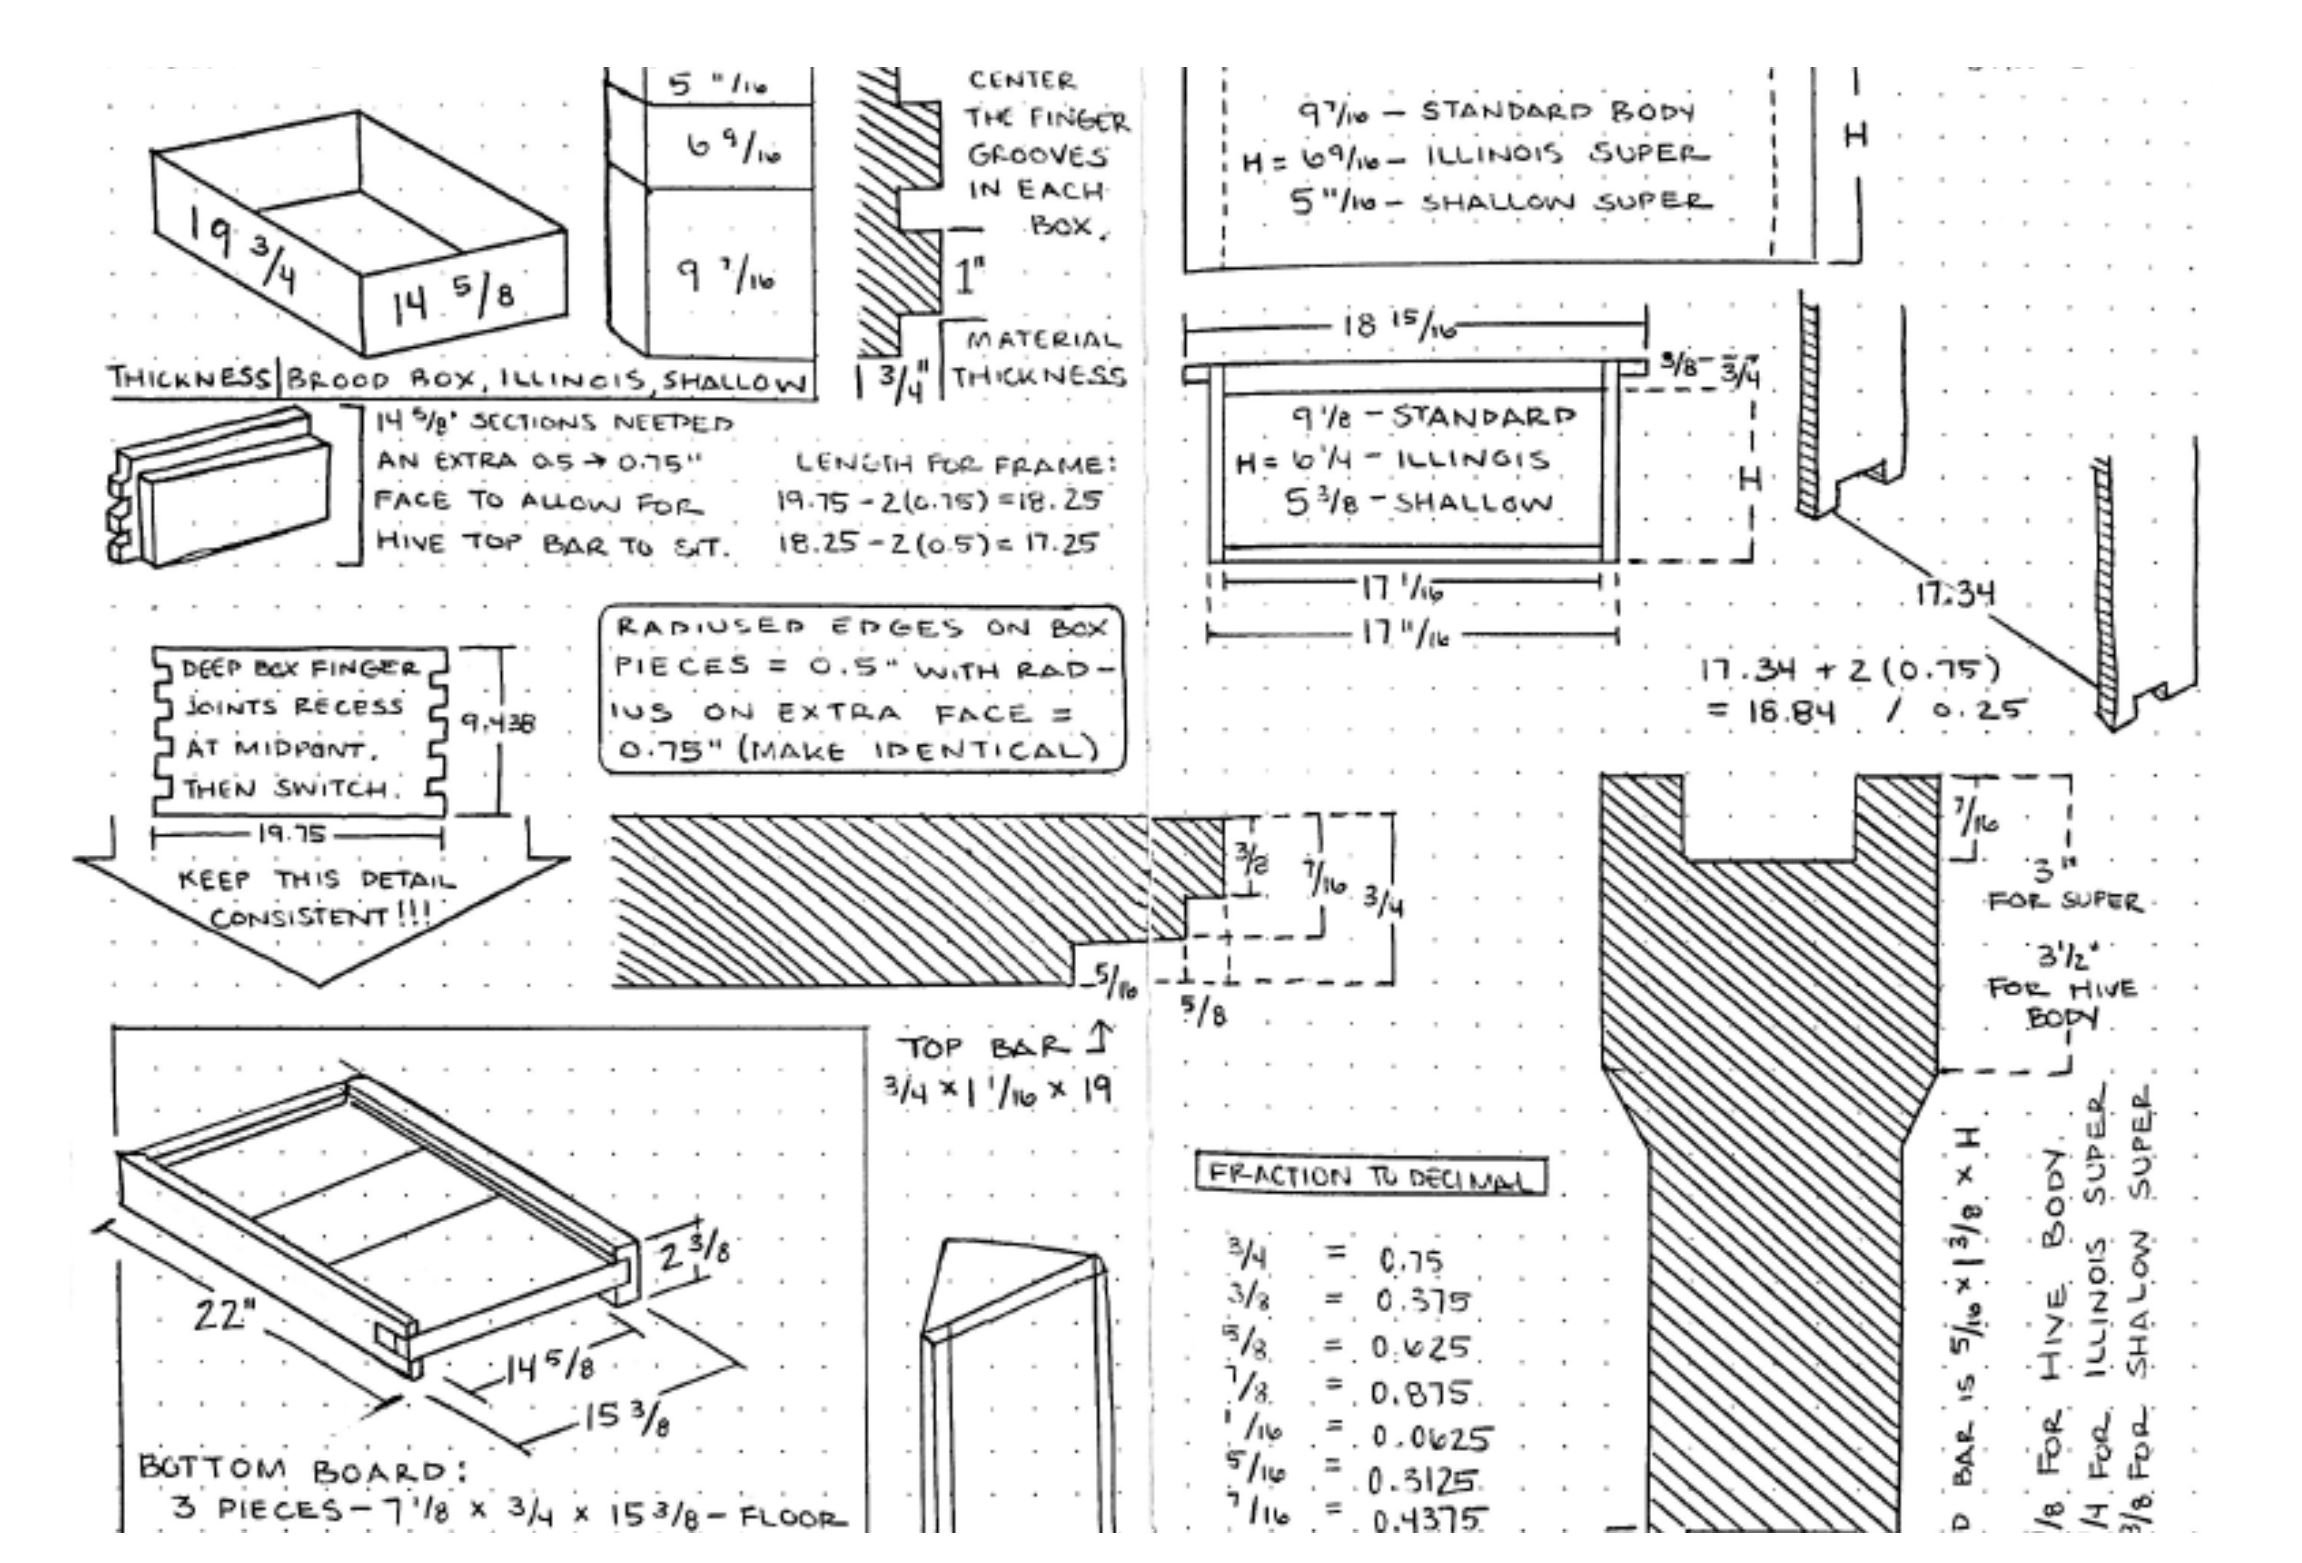 5 11/16
6 9/16
9 7/16
19 3/4
14 5/8
THICKNESS | BROOD BOX, ILLINOIS, SHALLOW
CENTER
THE FINGER
GROOVES
IN EACH
BOX.
1"
MATERIAL
THICKNESS
3/4"
14 5/8" SECTIONS NEEDED
AN EXTRA 0.5 → 0.75"
FACE TO ALLOW FOR
HIVE TOP BAR TO SIT.
LENGTH FOR FRAME:
19.75 - 2(0.75) = 18.25
18.25 - 2(0.5) = 17.25
DEEP BOX FINGER
JOINTS RECESS
AT MIDPONT,
THEN SWITCH.
9.438
19.75
KEEP THIS DETAIL
CONSISTENT!!!
RADIUSED EDGES ON BOX
PIECES = 0.5" WITH RAD-
IUS ON EXTRA FACE =
0.75" (MAKE IDENTICAL)
3/2
7/16
3/4
5/16
5/8
TOP BAR ↑
3/4 × 1 1/16 × 19
22"
2 3/8
14 5/8
15 3/8
BOTTOM BOARD:
3 PIECES - 7 1/8 × 3/4 × 15 3/8 - FLOOR
9 7/16 - STANDARD BODY
H = 6 9/16 - ILLINOIS SUPER
5 11/16 - SHALLOW SUPER
H
18 15/16
3/8 - 3/4
9 1/8 - STANDARD
H = 6 1/4 - ILLINOIS
5 3/8 - SHALLOW
H
17 1/16
17 11/16
17.34
17.34 + 2 (0.75)
= 18.84 / 0.25
7/16
3"
FOR SUPER
3 1/2"
FOR HIVE
BODY
FRACTION TO DECIMAL
3/4 = 0.75
3/8 = 0.375
5/8 = 0.625
7/8 = 0.875
1/16 = 0.0625
5/16 = 0.3125
7/16 = 0.4375
D BAR IS 5/16 × 1 3/8 × H
/8 FOR HIVE BODY.
/4 FOR ILLINOIS SUPER
3/8 FOR SHALOW SUPER